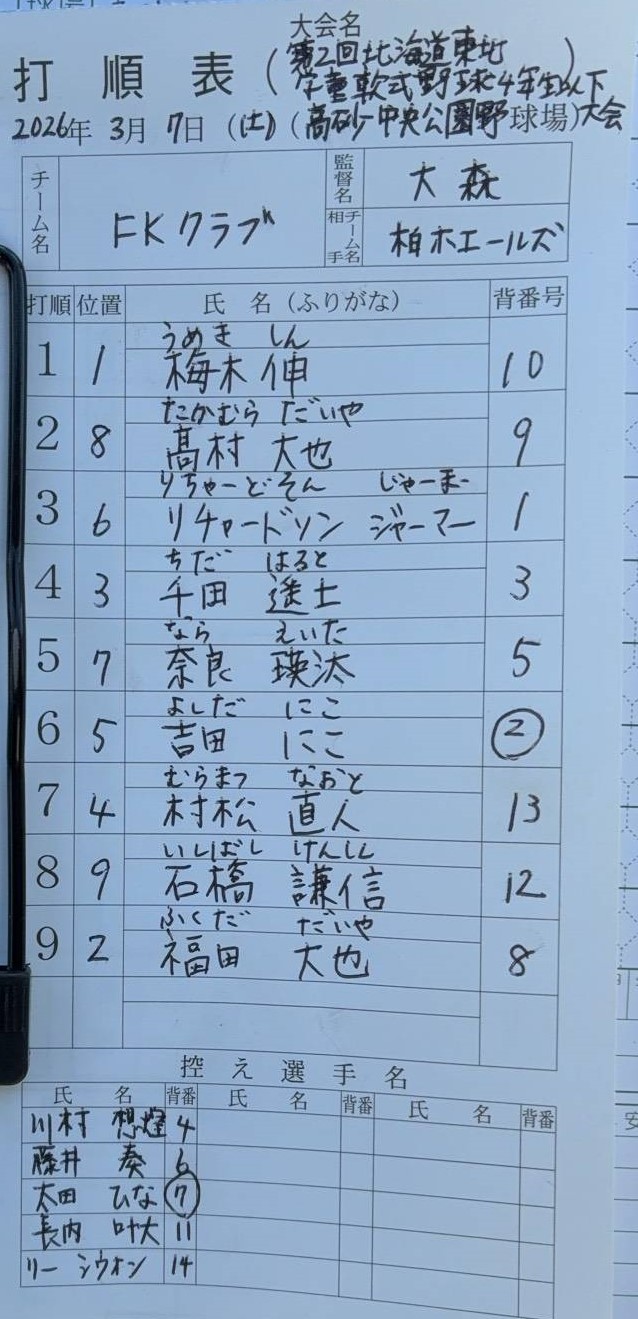 大会名
打順表(第2回北海道東北
学童軟式野球4年生以下)
2026年 3月 7日 (土) (高砂中央公園野球場)大会
チーム名 FKクラブ 監督名 大森
相手チーム名 柏ホエールズ
打順 位置 氏 名(ふりがな) 背番号
うめき しん
1 1 梅木 伸 10
たかむら だいや
2 8 髙村 大也 9
りちゃーどそん じゃーまー
3 6 リチャードソン ジャーマー 1
ちだ はると
4 3 千田 遥土 3
なら えいた
5 7 奈良 瑛汰 5
よしだ にこ
6 5 吉田 にこ ②
むらまつ なおと
7 4 村松 直人 13
いしばし けんしん
8 9 石橋 謙信 12
ふくだ だいや
9 2 福田 大也 8
控え選手名
氏 名 背番 氏 名 背番 氏 名 背番
川村 想煌 4
藤井 奏 6
太田 ひな ⑦
長内 叶大 11
リー シウォン 14